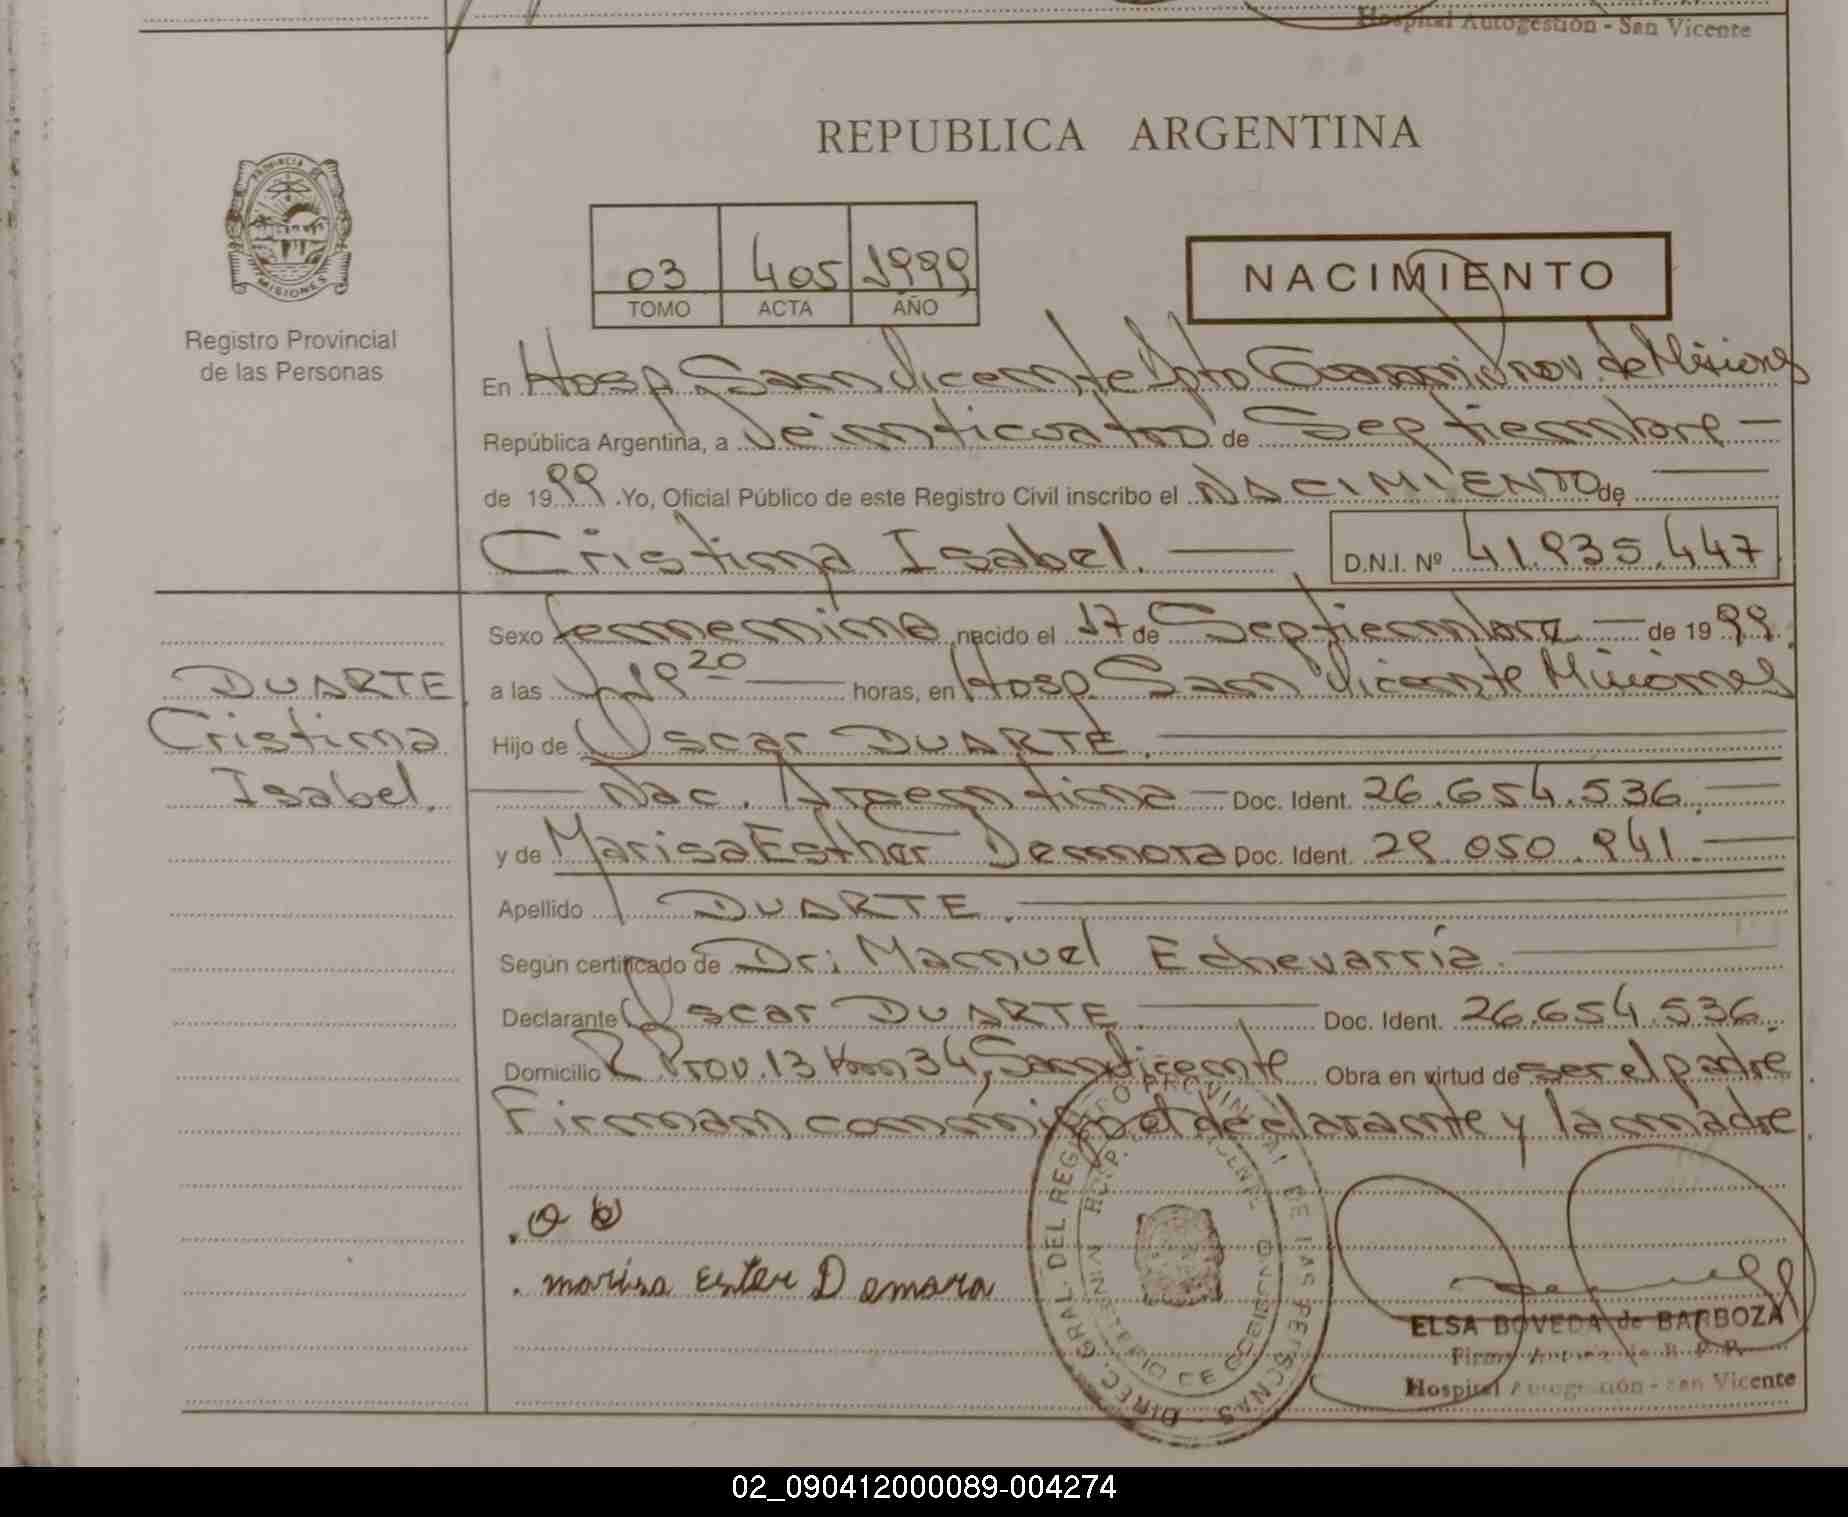 Hospital Autogestión - San Vicente
REPUBLICA ARGENTINA
PROVINCIA DE
MISIONES
Registro Provincial
de las Personas
03 405 1999
TOMO ACTA AÑO
NACIMIENTO
En Hosp. San Vicente Dpto Guaraní Prov. de Misiones
República Argentina, a Veinticuatro de Septiembre -
de 1999 .Yo, Oficial Público de este Registro Civil inscribo el NACIMIENTO de
Cristina Isabel. D.N.I. Nº 41.935.447
Sexo femenino nacido el 17 de Septiembre de 1999.
a las 19 20 horas, en Hosp. San Vicente Misiones
DUARTE
Cristina
Isabel.
Hijo de Oscar DUARTE.
Nac. Argentina - Doc. Ident. 26.654.536.
y de Marisa Esther Demora Doc. Ident. 29.050.941.
Apellido DUARTE.
Según certificado de Dr: Manuel Echevarría.
Declarante Oscar DUARTE Doc. Ident. 26.654.536.
Domicilio R Prov. 13 Km 34, San Vicente Obra en virtud de ser el padre
Firman conmigo el declarante y la madre.
marisa Ester Demara
DIREC. GRAL. DEL REGISTRO PROVINCIAL DE LAS PERSONAS
ELSA BOVEDA de BARBOZA
Hospital Autogestión - San Vicente
02_090412000089-004274